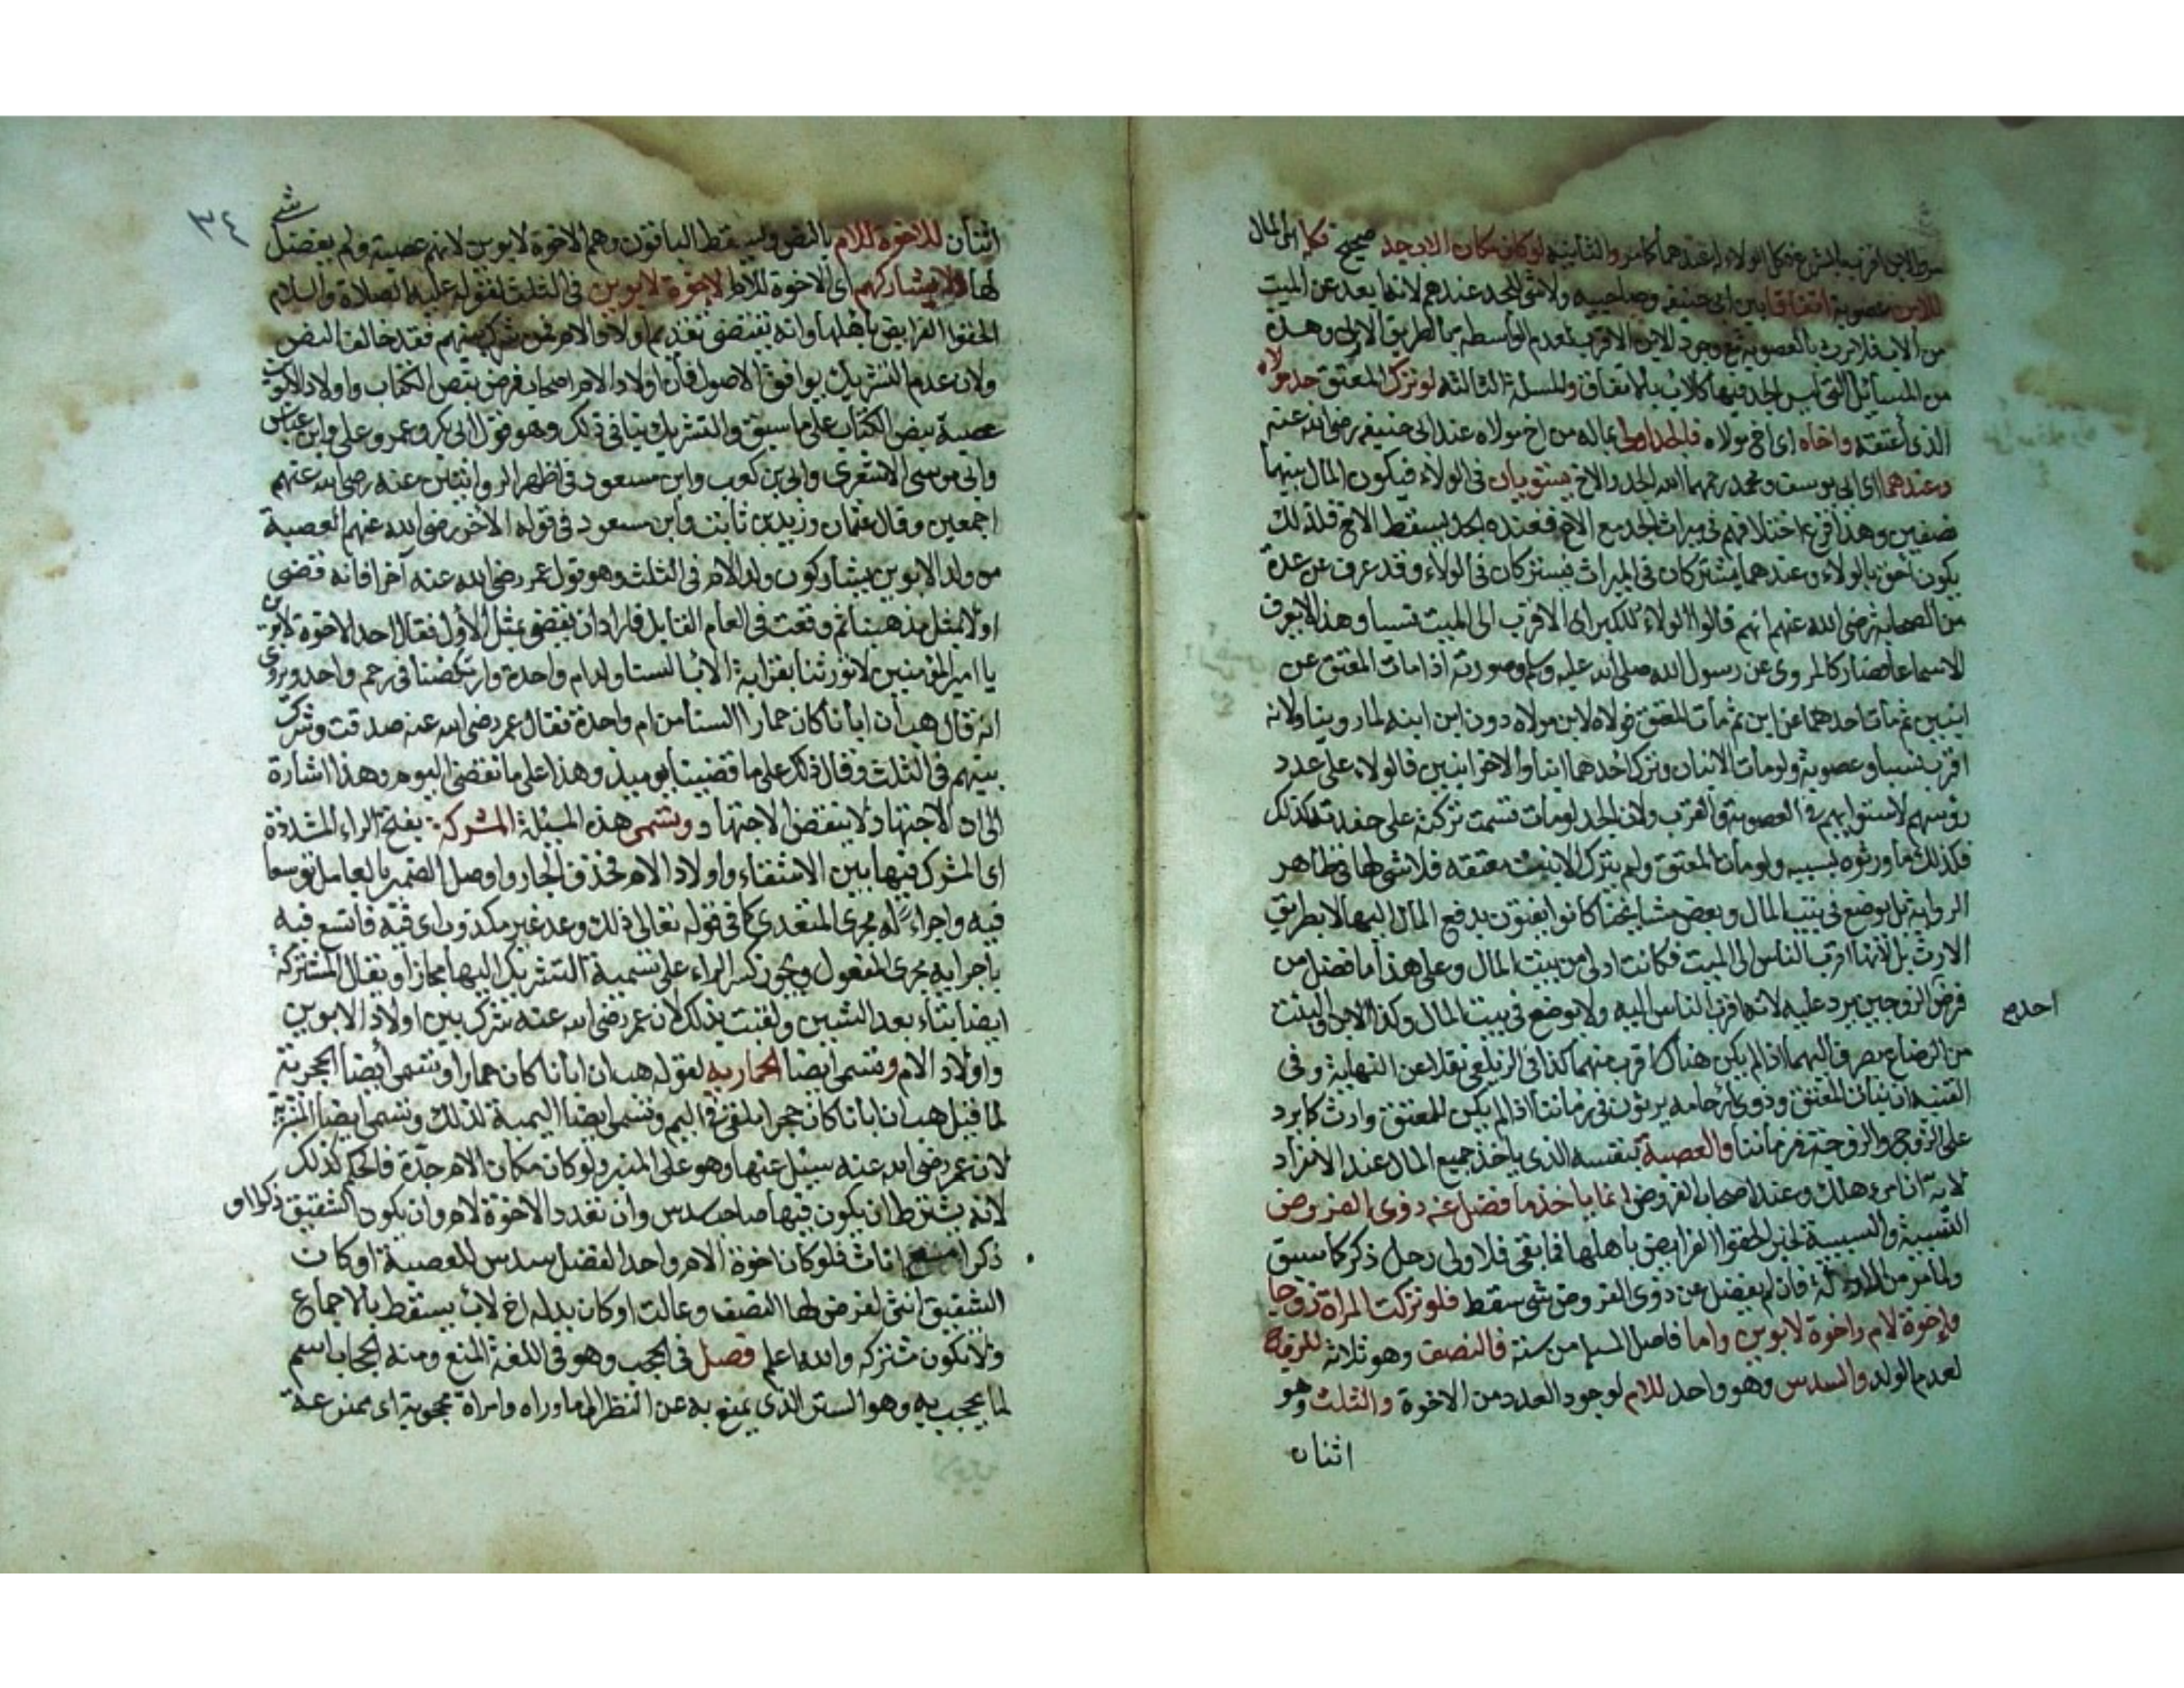 من الابن اقرب بالشرع فكل الولاء له عندهما كما مر والثانية لو كان مكان الاب جد صحيح فكل المال
للابن عصوبة اتفاقا بين ابي حنيفة وصاحبيه ولا شئ للجد عندهم لانه ابعد عن الميت
من الاب فلا يرث بالعصوبة مع وجود الابن الاقرب لعدم الواسطة بالطريق الاولى وهذه
من المسائل التي ليس الجد فيها كالاب بالاتفاق والمسئلة الثالثة لو ترك المعتق جد مولاه
الذي اعتقه واخاه اى اخ مولاه فالجد اولى بماله من اخ مولاه عند ابي حنيفة رضي الله عنه
وعندهما اى ابي يوسف ومحمد رحمهما الله الجد والاخ يستويان في الولاء فيكون المال بينهما
نصفين وهذا فرع اختلافهم في ميراث الجد مع الاخ فعنده الجد يسقط الاخ فلذلك
يكون احق بالولاء وعندهما يشتركان في الميراث فيشتركان في الولاء وقد عرف عن عدة
من الصحابة رضي الله عنهم انهم قالوا الولاء للكبر اى الاقرب الى الميت نسبا وهذا لا يعرف
الا سماعا فصار كالمروى عن رسول الله صلى الله عليه وسلم وصورته اذا مات المعتق عن
ابنين ثم مات احدهما عن ابن ثم مات المعتق فولاه لابن مولاه دون ابن ابنه لما روينا ولانه
اقرب نسبا وعصوبة ولو مات الاثنان وترك احدهما ابنا والاخر ابنين فالولاء على عدد
رؤسهم لاستوايهم في العصوبة والقرب ولان الجد لو مات قسمت تركته على حفدته كذلك
فكذلك ما ورثوه بسببه ولو مات المعتق ولم يترك الا بنت معتقه فلا شئ لها في ظاهر
الرواية بل يوضع في بيت المال وبعض مشايخنا كانوا يفتون بدفع المال اليها لا بطريق
الارث بل لانها اقرب الناس الى الميت فكانت اولى من بيت المال وعلى هذا ما فضل من
فرض الزوجين يرد عليه لانه اقرب الناس اليه ولا يوضع في بيت المال وكذا الابن والبنت
احدهم
من الرضاع يصرف اليهما اذا لم يكن هناك اقرب منهما كذا في الزيلعي نقلا عن النهاية وفي
القنية ان بنات المعتق وذوى ارحامه يرثون في زماننا اذا لم يكن للمعتق وارث كما يرد
على الزوج والزوجة في زماننا والعصبة بنفسه الذي ياخذ جميع المال عند الانفراد
لاية ان امرء هلك وعند اصحاب الفروض انما ياخذ ما فضل عنه ذوى الفروض
النسبية والسببية لخبر الحقوا الفرايض باهلها فما بقي فلاولى رجل ذكر كما سبق
فان لم يفضل عن ذوى الفروض شئ سقط فلو تركت المراة زوجا
واخوة لام واخوة لابوين واما فاصل المسئلة من ستة فالنصف وهو ثلاثة للزوج
لعدم الولد والسدس وهو واحد للام لوجود العدد من الاخوة والثلث وهو
اثنان
٣٤
شئ
اثنان للاخوة للام بالنص ويسقط الباقون وهم الاخوة لابوين لانهم عصبة ولم يفضل
لها ولا يشاركهم اى الاخوة للام الاخوة لابوين في الثلث لقوله عليه الصلاة والسلام
الحقوا الفرايض باهلها وانه يقتضي تقديم اولاد الام فمن شرك بينهم فقد خالف النص
ولان عدم التشريك يوافق الاصول فان اولاد الام اصحاب فرض بنص الكتاب واولاد الابوين
عصبة بنص الكتاب على ما سبق والتشريك ينافي ذلك وهو قول ابي بكر وعمر وعلي وابن عباس
وابي موسى الاشعري وابي بن كعب وابن مسعود في اظهر الروايتين عنه رضي الله عنهم
اجمعين وقال عثمان وزيد بن ثابت وابن مسعود في قوله الآخر رضي الله عنهم العصبة
من ولد الابوين يشاركون ولد الام في الثلث وهو قول عمر رضي الله عنه آخرا فانه قضى
اولا بمثل مذهبنا ثم وقعت في العام القابل فاراد ان يقضي بمثل الاول فقال احد الاخوة لابوين
يا امير المؤمنين لا تورثنا بقرابة الاب السنا ولد ام واحدة وارتكضنا في رحم واحد ويروى
انه قال هب ان ابانا كان حمارا السنا من ام واحدة فقال عمر رضي الله عنه صدقت وشرك
بينهم في الثلث وقال ذلك على ما قضينا يوميذ وهذا على ما نقضي اليوم وهذا اشارة
الى ان الاجتهاد لا ينقض الاجتهاد وتسمى هذه المسئلة المشركة بفتح الراء المشددة
اى المشرك فيها بين الاشقاء واولاد الام فحذف الجار واوصل الضمير بالعامل توسعا
فيه واجراء له مجرى المتعدي كما في قوله تعالى ذلك وعد غير مكذوب اى فيه فاتسع فيه
باجرايه مجرى المفعول ويجوز كسر الراء على نسمية التشريك اليها مجازا ويقال المشتركة
ايضا بتاء بعد الشين ولقبت بذلك لان عمر رضي الله عنه شرك بين اولاد الابوين
واولاد الام وتسمى ايضا الحمارية لقوله هب ان ابانا كان حمارا وتسمى ايضا الحجرية
لما قيل هب ان ابانا كان حجرا ملقى في اليم وتسمى ايضا اليمية لذلك وتسمى ايضا المنبرية
لان عمر رضي الله عنه سئل عنها وهو على المنبر ولو كان مكان الام جدة فالحكم كذلك
لانه يشترط ان يكون فيها صاحب سدس وان تعدد الاخوة لام وان يكون الشقيق ذكرا او
ذكرا مع اناث فلو كان اخوة الام واحدا لفضل سدس للعصبة او كان
الشقيق انثى لفرض لها النصف وعالت او كان بدله اخ لاب يسقط بالاجماع
ولا تكون مشتركة والله اعلم فصل في الحجب وهو في اللغة المنع ومنه الحجاب اسم
لما يحجب به وهو الستر الذي يمنع به عن النظر لما وراه وامراة محجوبة اى يمنع عنه